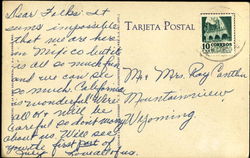 Dear Folks: It
seems impossible
that we are here
in Mexico but it
is all so much fun
and we can see
so much. California
so wonderful. Were
all o.k. Will be
careful so don't worry
about us. Will see
you the first part of
July
TARJETA POSTAL
10 CORREOS
Mr & Mrs. Ray
Mountainview
Wyoming